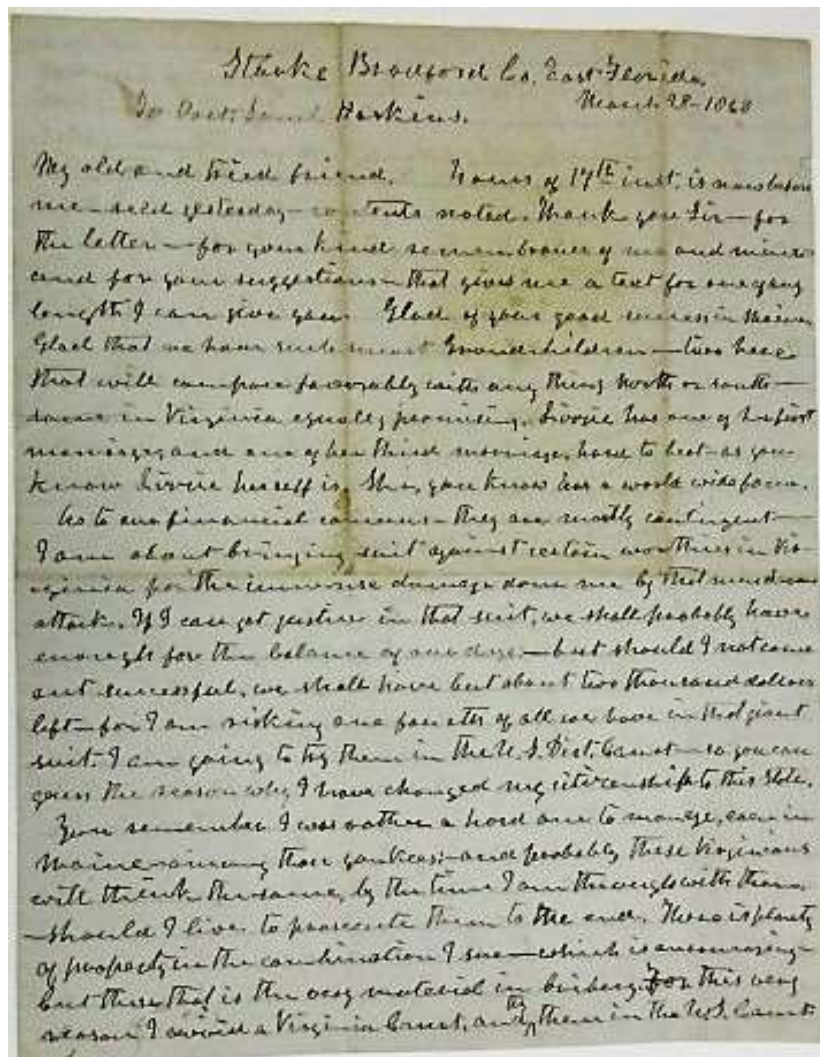 Starke Bradford Co. East Florida
March 28-1868
To Doct. Saml. Haskins.
My old and tried friend. Yours of 17th inst. is now before
me - recd yesterday - contents noted. Thank you Sir - for
the letter - for your kind remembrance of me and mine
and for your suggestions - that gives me a text for one long
length I can give you. Glad of your good success in Maine
Glad that we have such smart Grandchildren - two here
that will compare favorably with any thing North or south -
some in Virginia equally promising. Livvie has one of her first
marriage, and one of her third marriage, hard to beat - as you
know Livvie herself is. She, you know has a world wide fame.
As to our financial concerns - they are mostly contingent -
I am about bringing suit against certain worthies in Vir-
ginia for the immense damage done me by that
attack. If I can get justice in that suit, we shall probably have
enough for the balance of our days - but should I not come
out successful, we shall have but about two thousand dollars
left - for I am risking of all we have in that giant
suit. I am going to try them in the U.S. Dist. Court - so you can
guess the reason why I have changed my citizenship to this State.
You remember I was rather a hard one to manage, even in
Maine - among those yankees - and probably these Virginians
will think the same, by the time I am through with them,
- should I live to prosecute them to the end. There is plenty
of property in the combination I sue - which is encouraging -
but then that is the very material in bribery. For this very
reason I avoid a Virginia Court, and try them in the U.S. Court